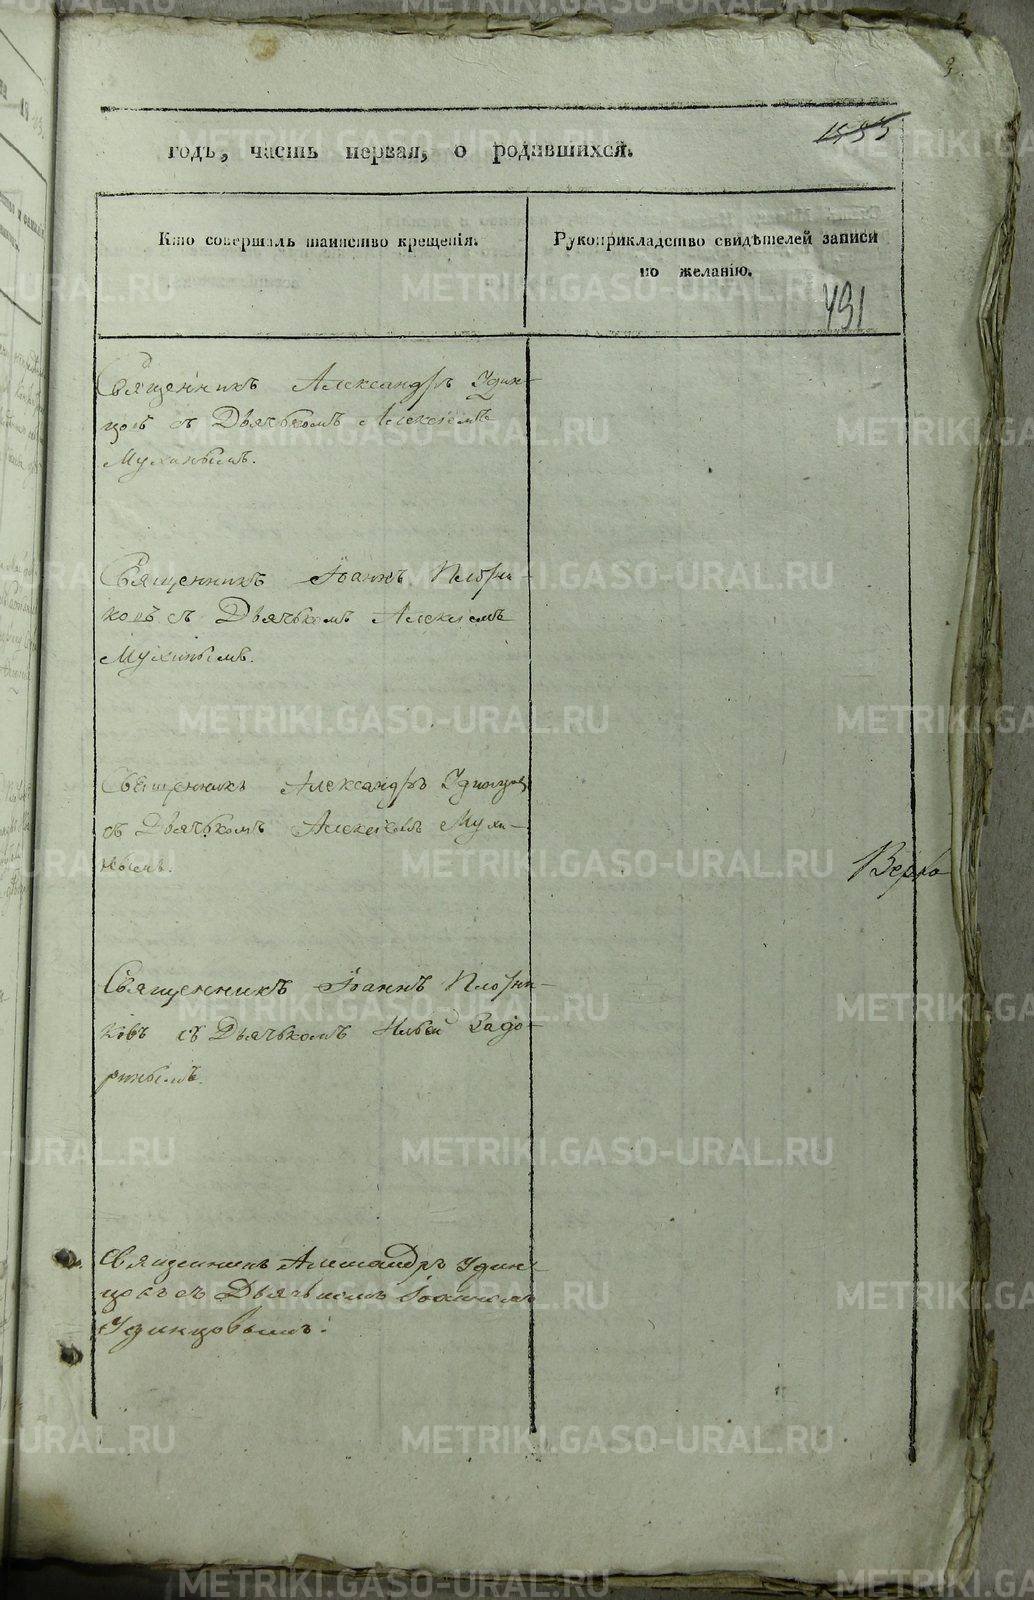 3
годъ, часть первая, о родившихся.
Кто совершалъ таинство крещенія.
Рукоприкладство свидѣтелей записи
по желанію.
491
Священникъ Александръ Удин-
цовъ съ Дьячькомъ Алексіемъ
Мухинымъ.
Священникъ Іоаннъ Плотни-
ковъ съ Дьячькомъ Алексіемъ
Мухинымъ.
Священникъ Александръ Удинцовъ
съ Дьячькомъ Алексіемъ Мухи-
нымъ.
Верхо
Священникъ Іоаннъ Плотни-
ковъ съ Дьячькомъ Ильей Задо-
ринымъ.
Священникъ Александръ Удин-
цовъ съ Дьячькомъ Іоанномъ
Удинцовымъ.
METRIKI.GASO-URAL.RU